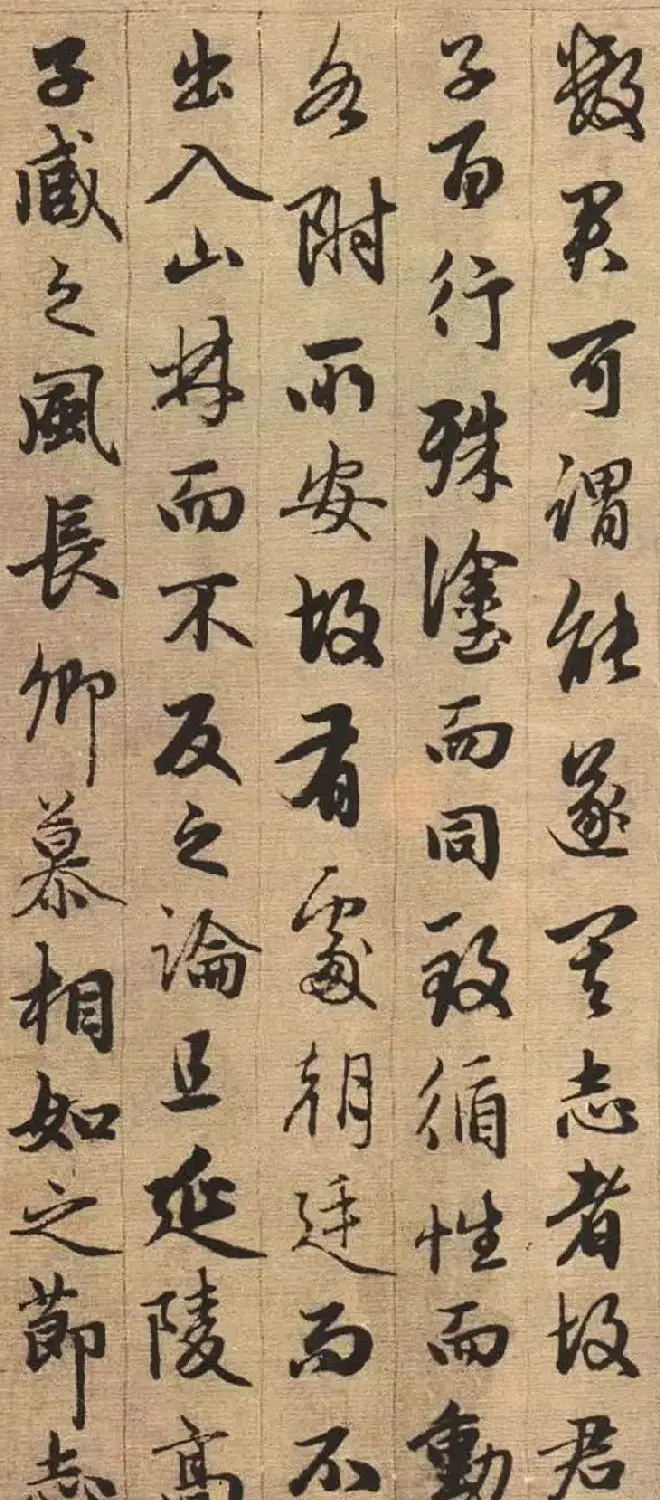 數君可謂能遂其志者故君
子百行殊塗而同致循性而動
各附所安故有處朝廷而不
出入山林而不反之論且延陵高
子臧之風長卿慕相如之節志